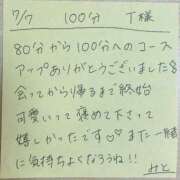 7/7 100分 T様
80分から100分へのコース
アップありがとうございました
会ってから帰るまで終始
可愛いって褒めて下さって
嬉しかったです♡♡また一緒
に気持ちよくなろうね!!
みと